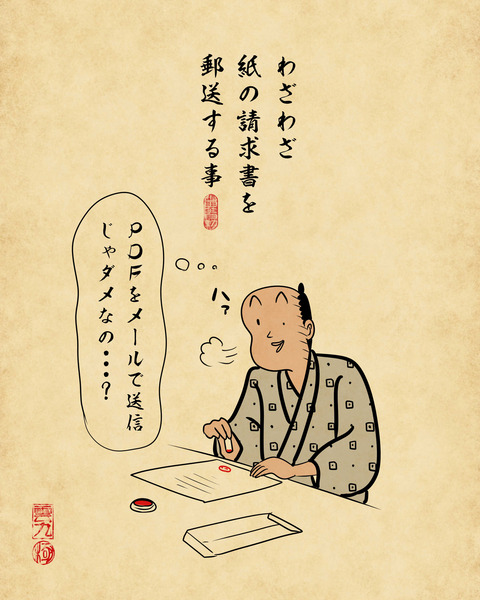 わざわざ
紙の請求書を
郵送する事
ハ?
PDFをメールで送信
じゃダメなの・・・?